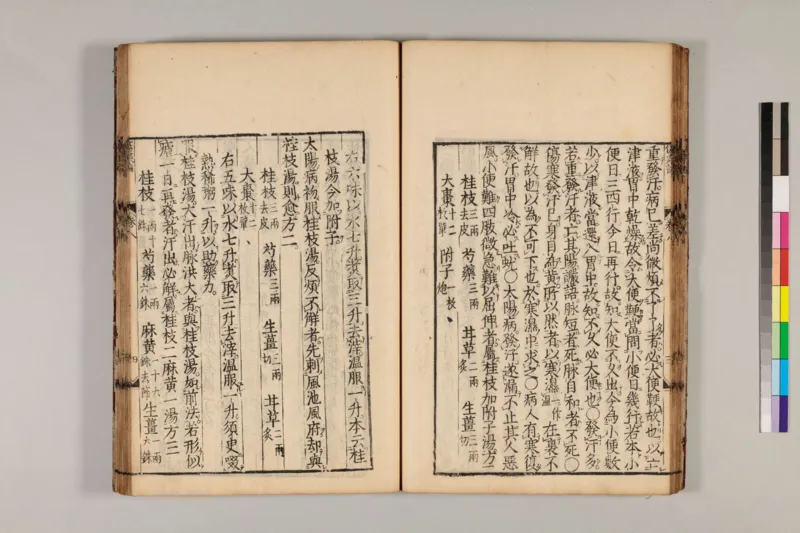 重發汗病已差尚微煩不了了者必大便鞕故也以亡
津液胃中乾燥故令大便鞕當問小便日幾行若本小
便日三四行今日再行故知大便不久出今為小便數
少以津液當還入胃中故知不久必大便也〇發汗多
若重發汗者亡其陽讝語脉短者死脉自和者不死〇
傷寒發汗已身目為黃所以然者以寒濕一作溫在裏不
解故也以為不可下也於寒濕中求之〇病人有寒復
發汗胃中冷必吐蚘〇太陽病發汗遂漏不止其人惡
風小便難四肢微急難以屈伸者屬桂枝加附子湯方一
桂枝三兩去皮 芍藥三兩 甘草二兩炙 生薑三兩切
大棗十二枚擘 附子一枚炮
右六味以水七升煑取三升去滓溫服一升本云桂
枝湯今加附子
太陽病初服桂枝湯反煩不解者先刺風池風府却與
桂枝湯則愈方二
桂枝三兩去皮 芍藥三兩 生薑三兩切 甘草二兩炙
大棗十二枚擘
右五味以水七升煑取三升去滓溫服一升須臾啜
熱稀粥一升以助藥力
服桂枝湯大汗出脉洪大者與桂枝湯如前法若形似
瘧一日再發者汗出必解屬桂枝二麻黃一湯方三
桂枝一兩十七銖 芍藥一兩六銖 麻黃十六銖去節 生薑一兩六銖